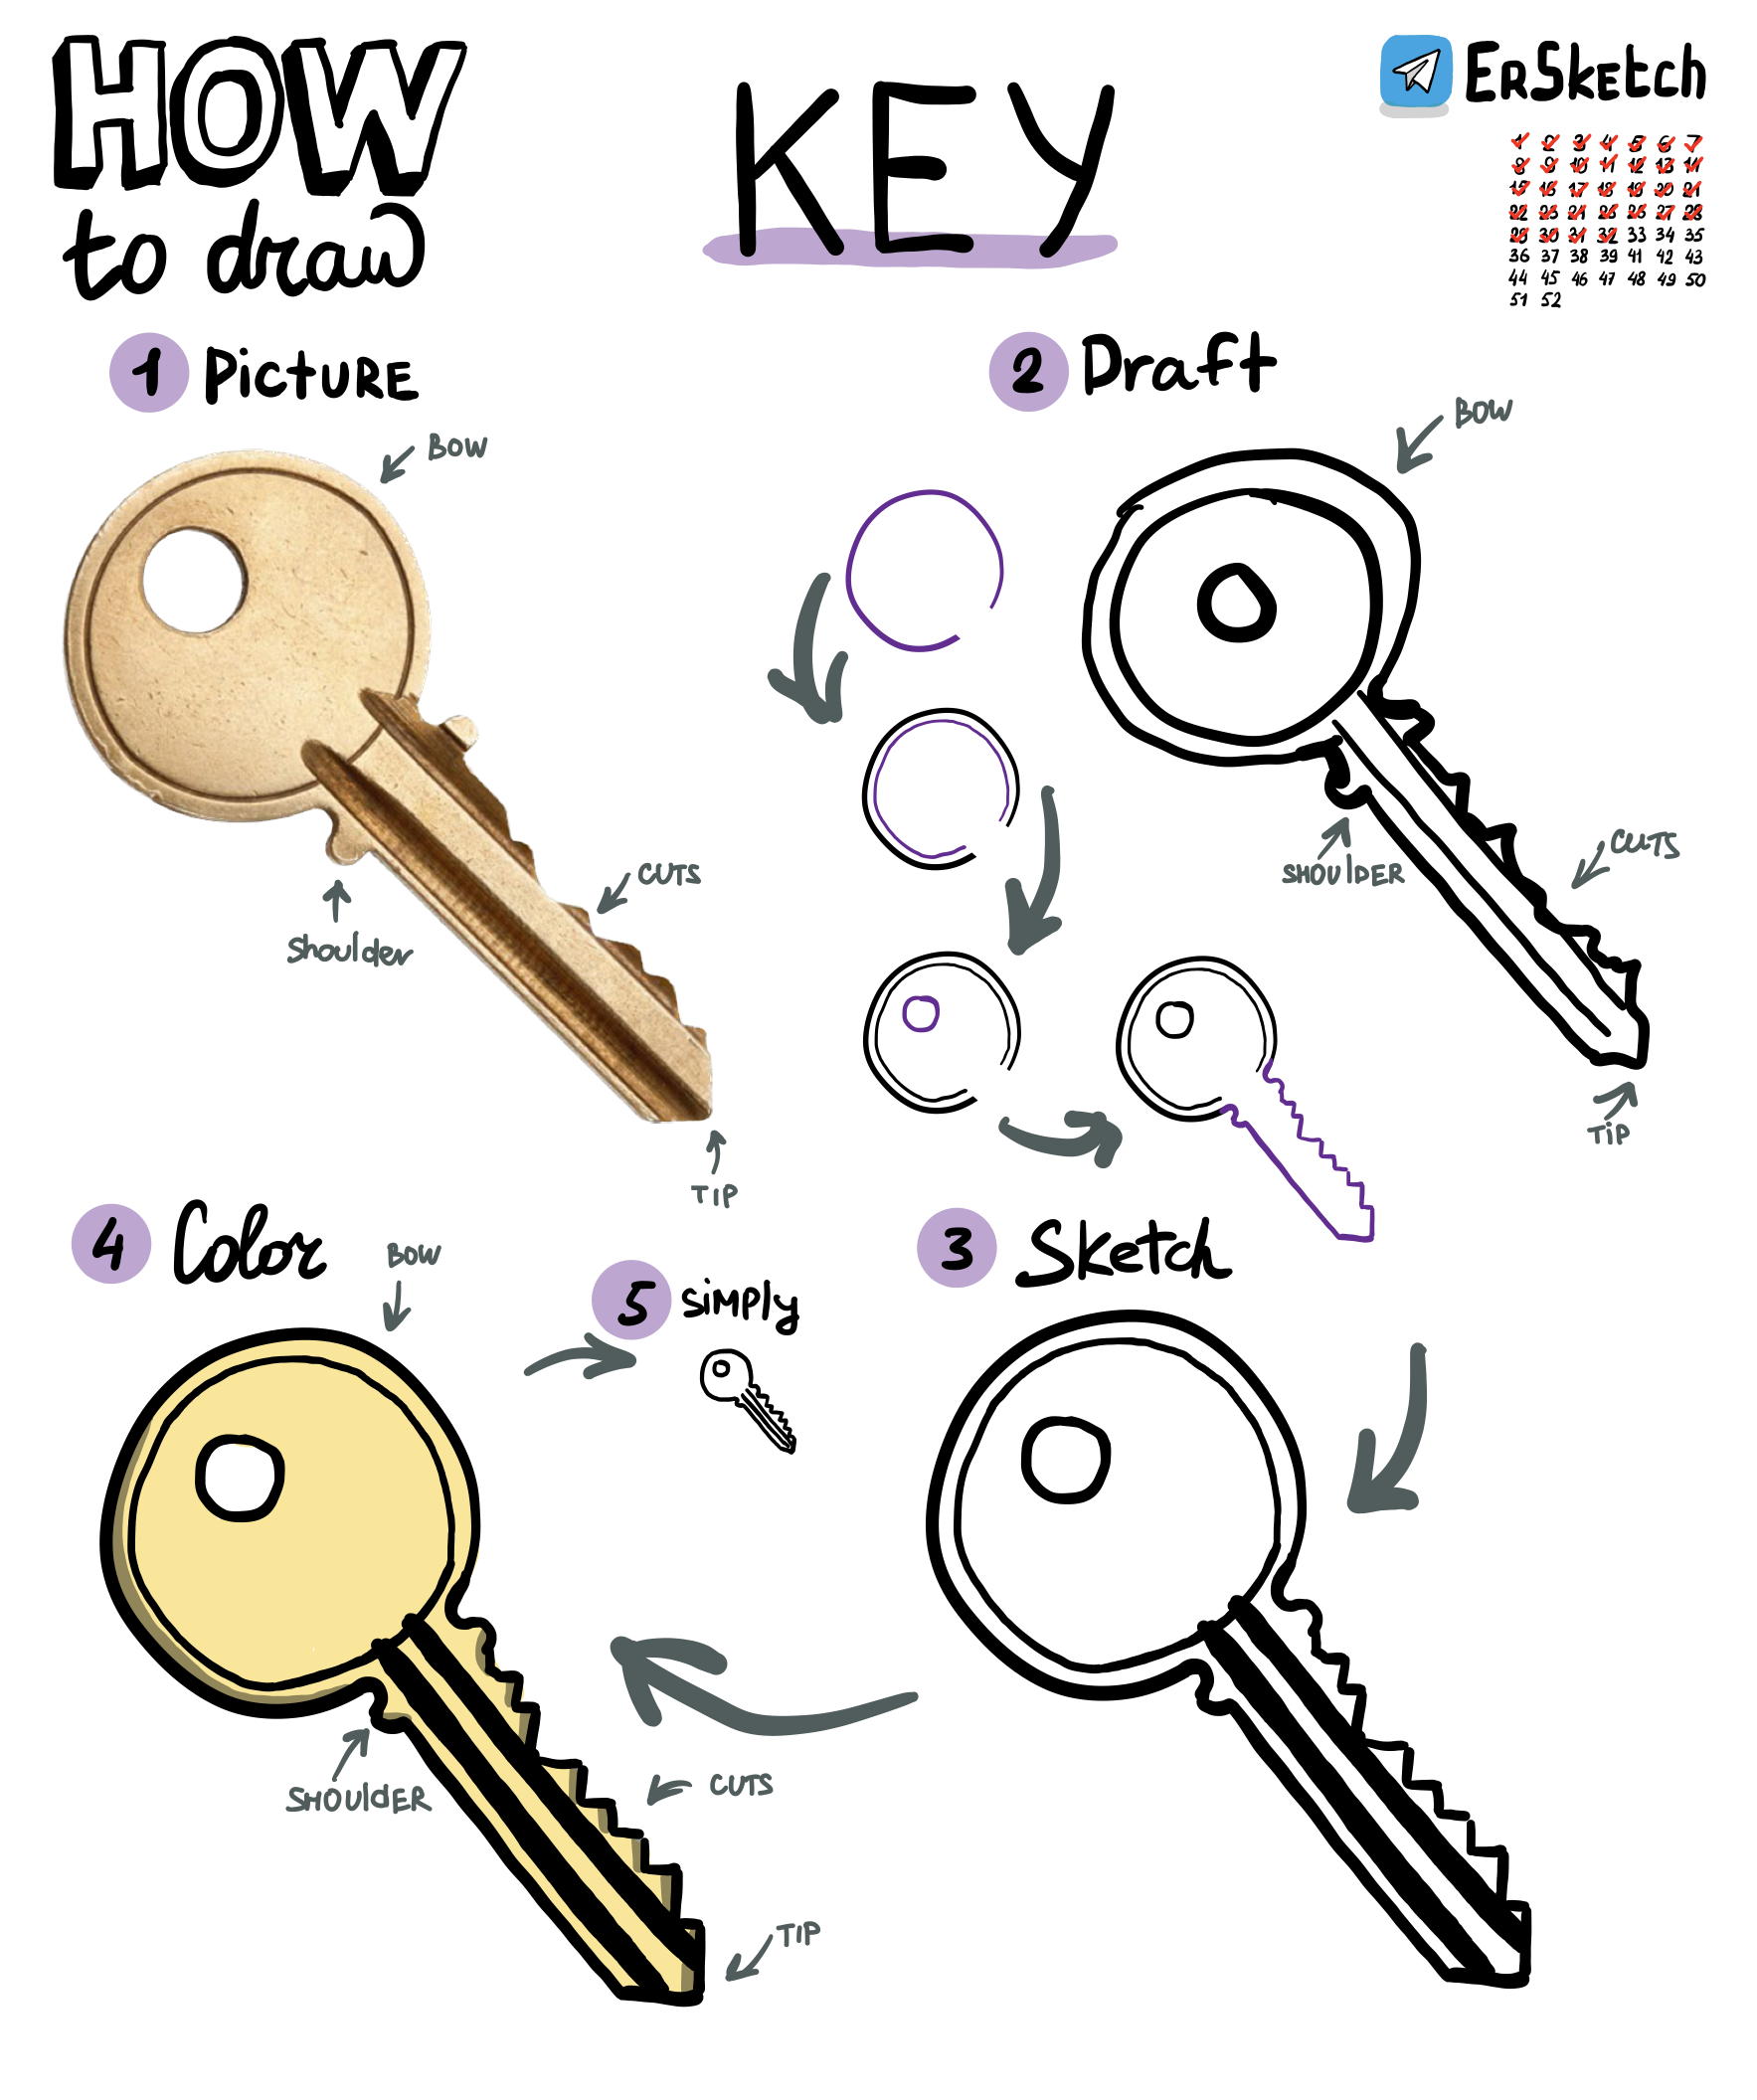 HOW
to draw
KEY
ErSketch
1 2 3 4 5 6 7
8 9 10 11 12 13 14
15 16 17 18 19 20 21
22 23 24 25 26 27 28
29 30 31 32 33 34 35
36 37 38 39 41 42 43
44 45 46 47 48 49 50
51 52
1 PictURE
BOW
CUTS
Shoulder
TIP
2 Draft
BOW
SHOUlDER
CUTS
TiP
3 Sketch
4 Color
BOW
SHOUldER
CUTS
TIP
5 SiMPly